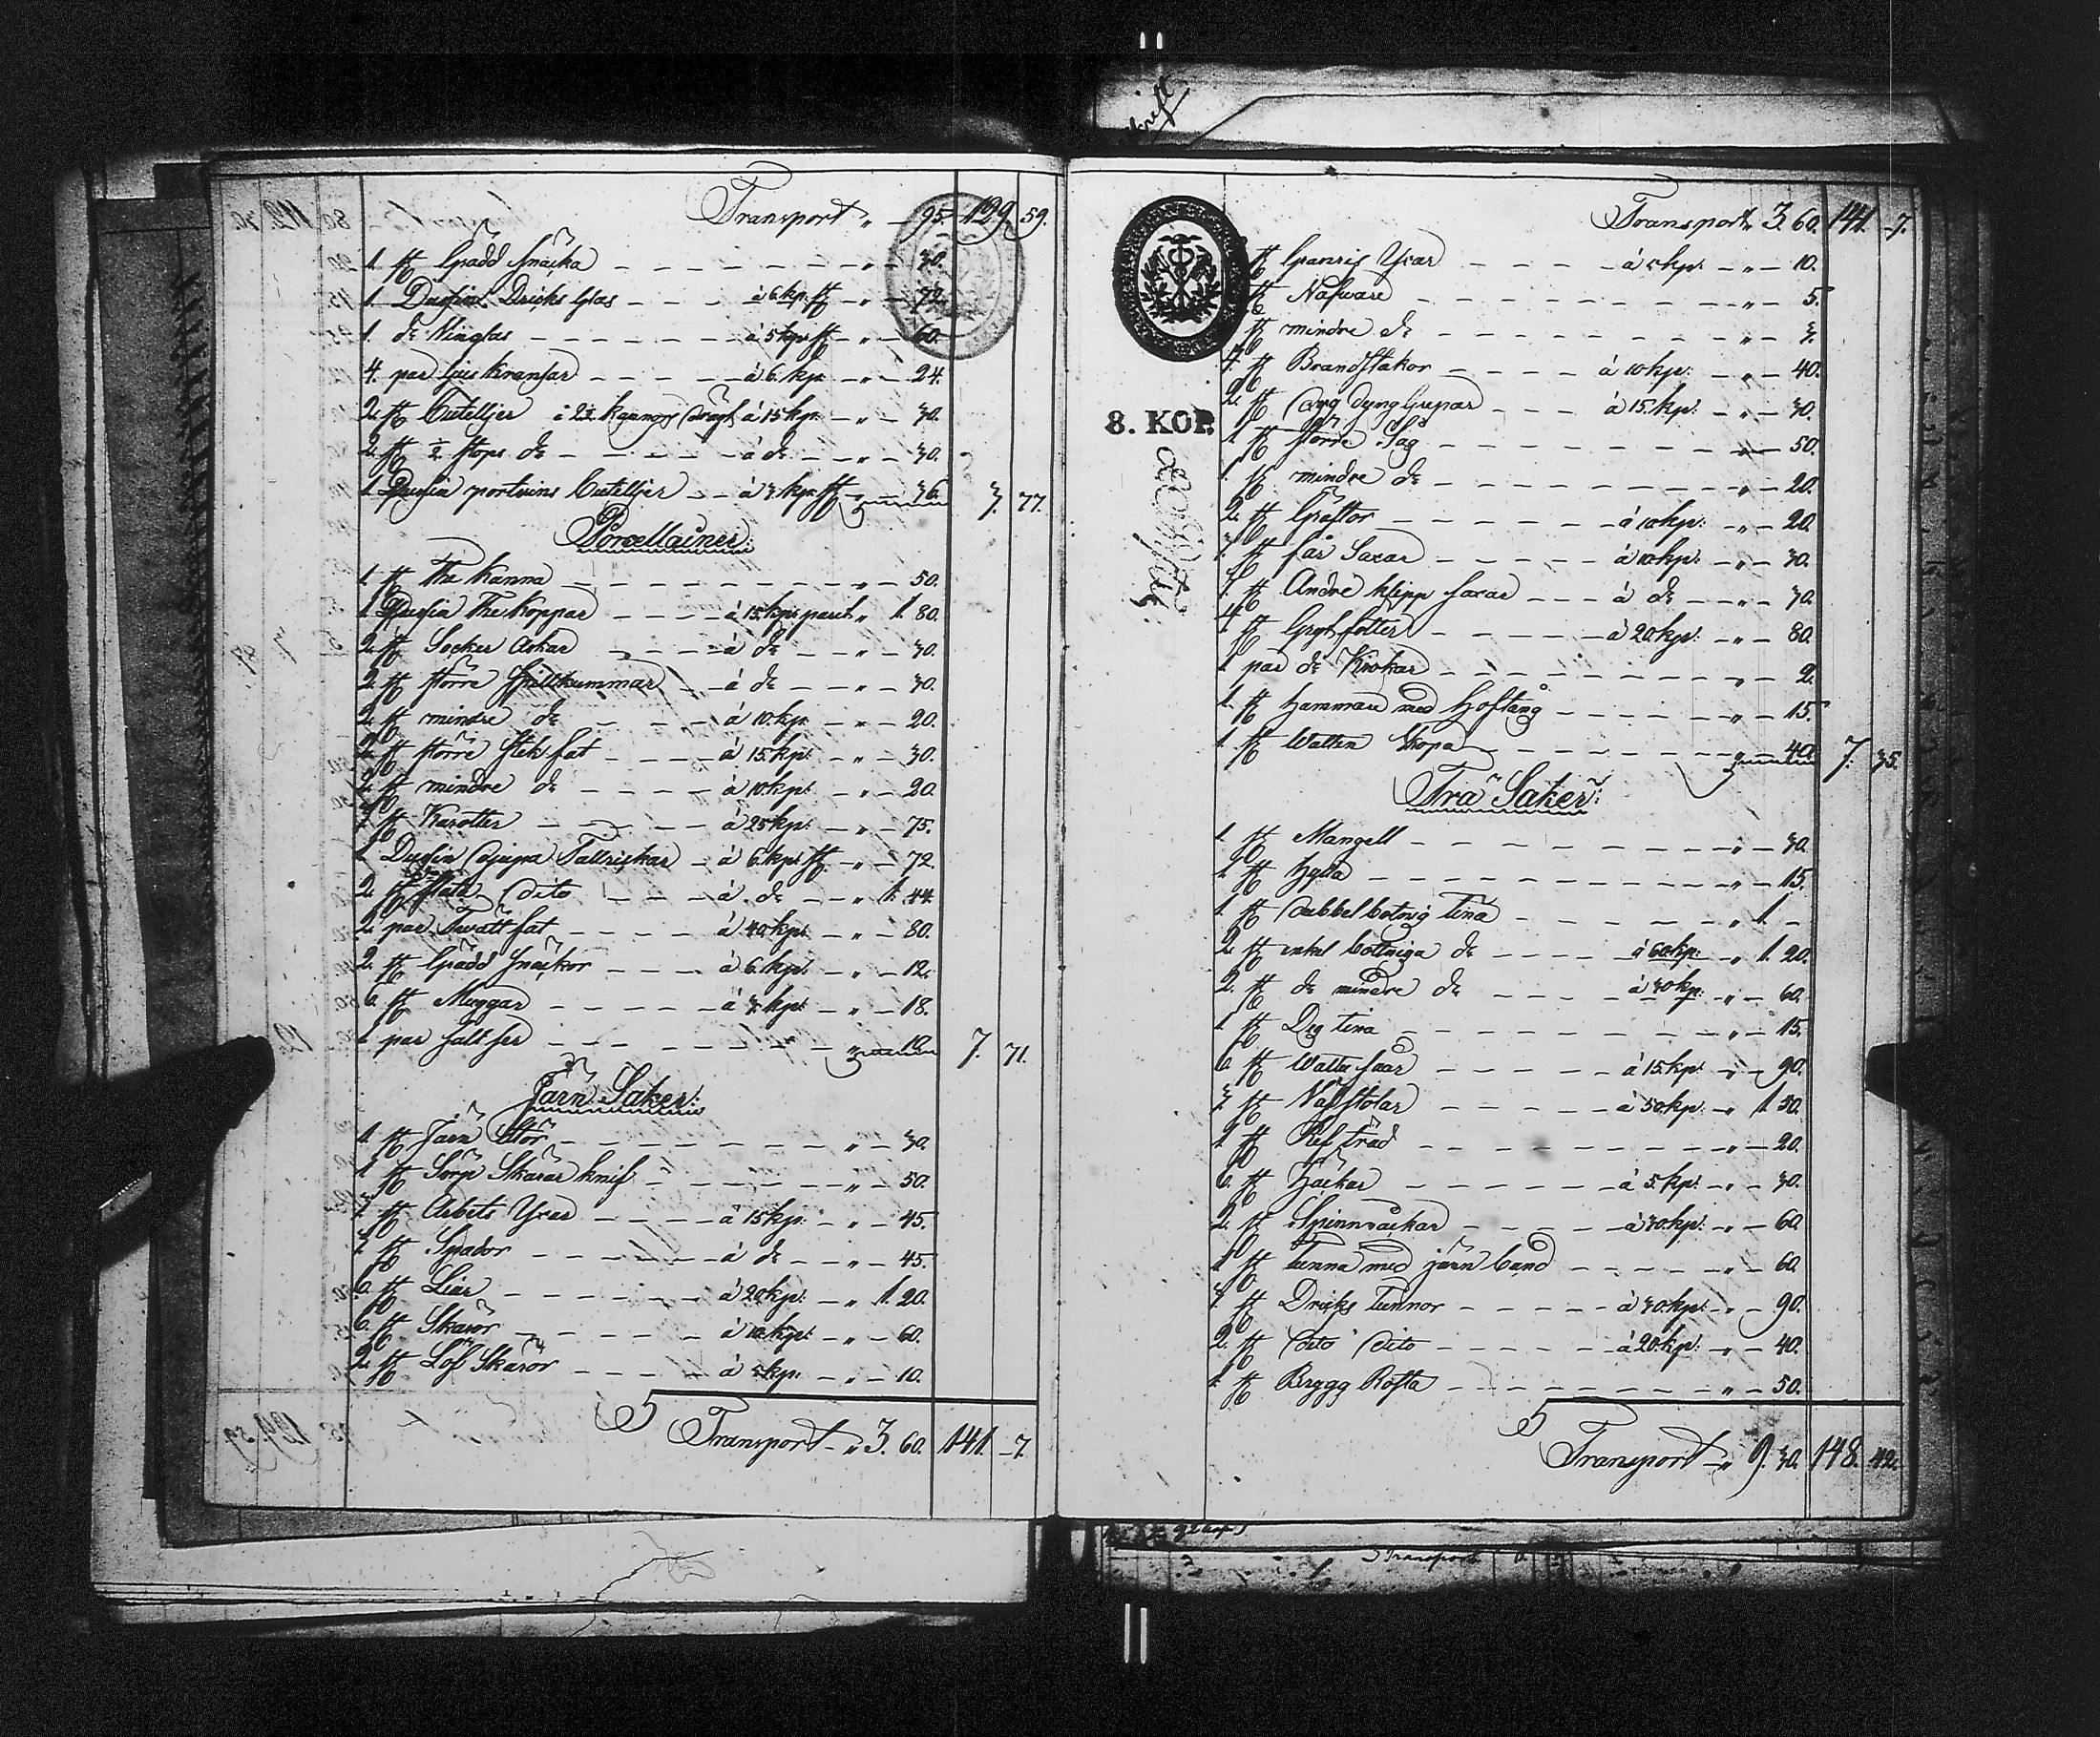 Transport „ — 95. 129. 59.
1. st. Grädd snäcka — — „ — 30.
1. Dussin Dricks Glas — — à 6. kp. st. „ — 72.
1. do Vinglas — — à 5 kp. st. „ — 60.
4. par Ljus kransar — — à 6. kp. — „ — 24.
2. st. Buteljer à 2½ kannors à 15 kp. — „ — 30.
2. st. ½ stops do — — à do — „ — 30.
1. Dussin portvins Buteljer — à 3. kp. st. — 36. 3. 77.
Porcellainer:
1. st. The Kanna — — „ — 50.
1 Dussin The Koppar — — à 15. kp. paret „ 1. 80.
2. st. Socker Askar — à do — „ — 30.
2. st. större Spillkummar — à do — „ — 30.
2. st. mindre do — — à 10. kp. — „ — 20.
2. st. större Stek fat — — à 15. kp. — „ — 30.
2. st. mindre do — — à 10. kp. — „ — 20.
3. st. Karotter — — à 25 kp. — „ — 75.
1. Dussin djupa Tallriskar — à 6. kp. st. — „ — 72.
2. flata dito — — à do — „ 1. 44.
2. par Tvätt fat — — à 40 kp. — „ — 80.
2. st. Grädd snäckor — — à 6. kp. — „ — 12.
6. st. Muggar — — à 3. kp. — „ — 18.
1. par salt ser — — „ — 10. 7. 71.
Järn Saker:
1. st. Järn Stör — — „ — 30.
1. st. Sörp Skärar knif — — „ — 50.
3. st. Arbets Yxar — — à 15 kp. — „ — 45.
3. st. Spador — — à do — „ — 45.
6. st. Liar — — à 20 kp. — „ 1. 20.
6. st. Skäror — — à 10. kp. — „ — 60.
2. st. Löf Skäror — — à 5 kp. — „ — 10.
Transport — „ 3. 60. 141. 7.
Transport „ 3. 60. 141. 7.
8. KOP.
st. Granris Yxar — — à 5 kp. — „ — 10.
st. Nafvare — — „ — 5.
st. mindre do — — „ — 3.
4. st. Brandstakor — — à 10 kp. — „ — 40.
2. st. dyng Grepar — — à 15. kp. — „ — 30.
1. st. större Såg — — „ — 50.
1. st. mindre do — — „ — 20.
2. st. Gräftor — — à 10 kp. — „ — 20.
3. st. får Saxar — — à 10 kp. — „ — 30.
3. st. Andre klipp saxar — — à do — „ — 30.
4. st. Gryt fötter — — à 20 kp. — „ — 80.
1 par do Krokar — — „ — 2.
1. st. hammare med Hoftång — — „ — 15.
1. st. Watten Skopa — — 40. 7. 35.
Trä Saker:
1. st. Mangell — — „ — 30.
1. st. hylla — — „ — 15.
1. st. dubbel botnig tina — — „ 1. —
2. st. enkel bottniga do — — à 60 kp. „ 1. 20.
2. st. do mindre do — — à 30 kp. „ — 60.
1. st. Deg tina — — „ — 15.
6. st. Watten saar — — à 15 kp. „ — 90.
3. st. Väfstolar — — à 50 kp. „ 1. 50.
1. st. Ref träd — — „ — 20.
6. st. häckar — — à 5. kp. „ — 30.
2. st. Spinnråckar — — à 30 kp. „ — 60.
1. st. Tunna med järn band — — „ — 60.
3. st. Dricks tunnor — — à 30 kp. „ — 90.
2. st. dito dito — — à 20 kp. „ — 40.
1. st. Brygg Rosta — — „ — 50.
Transport — „ 9. 30. 148. 42.